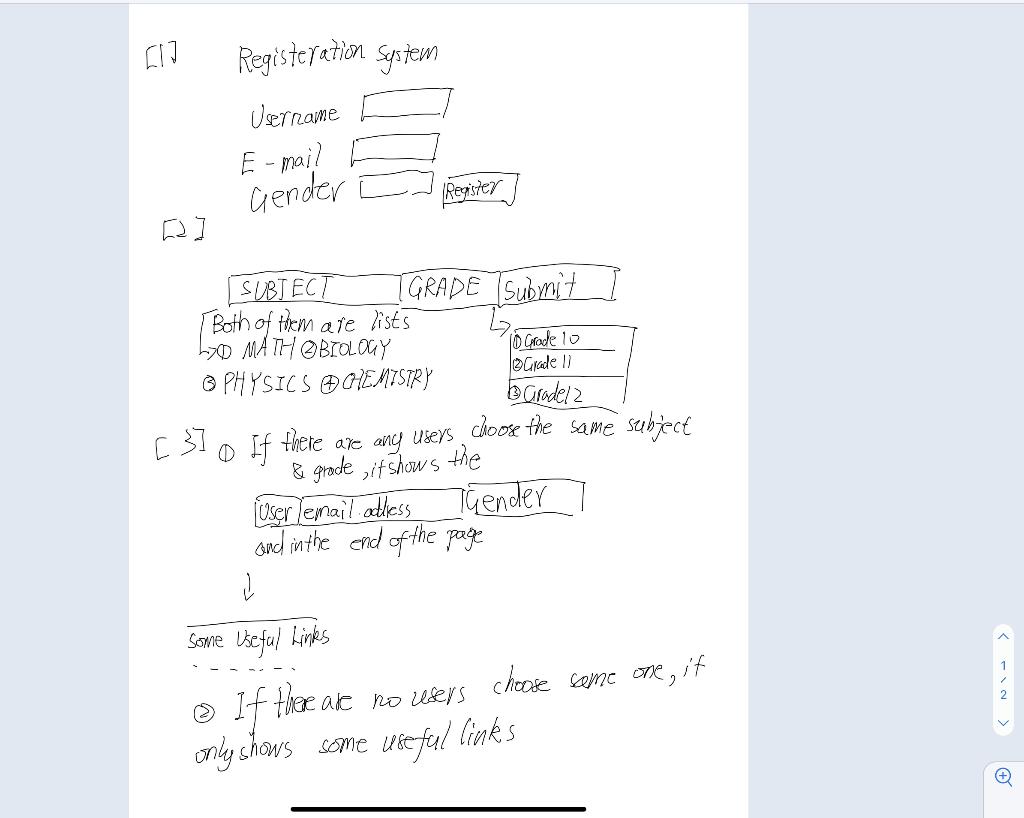 [1] Registeration System
Username
E-mail
Gender Register
[2]
SUBJECT GRADE Submit
Both of them are lists
① MATH ② BIOLOGY
③ PHYSICS ④ CHEMISTRY
① Grade 10
② Grade 11
③ Grade 12
[3] ① If there are any users choose the same subject
& grade, it shows the
User email address Gender
and in the end of the page
Some Useful Links
② If there are no users choose same one, it
only shows some useful links
1
/
2